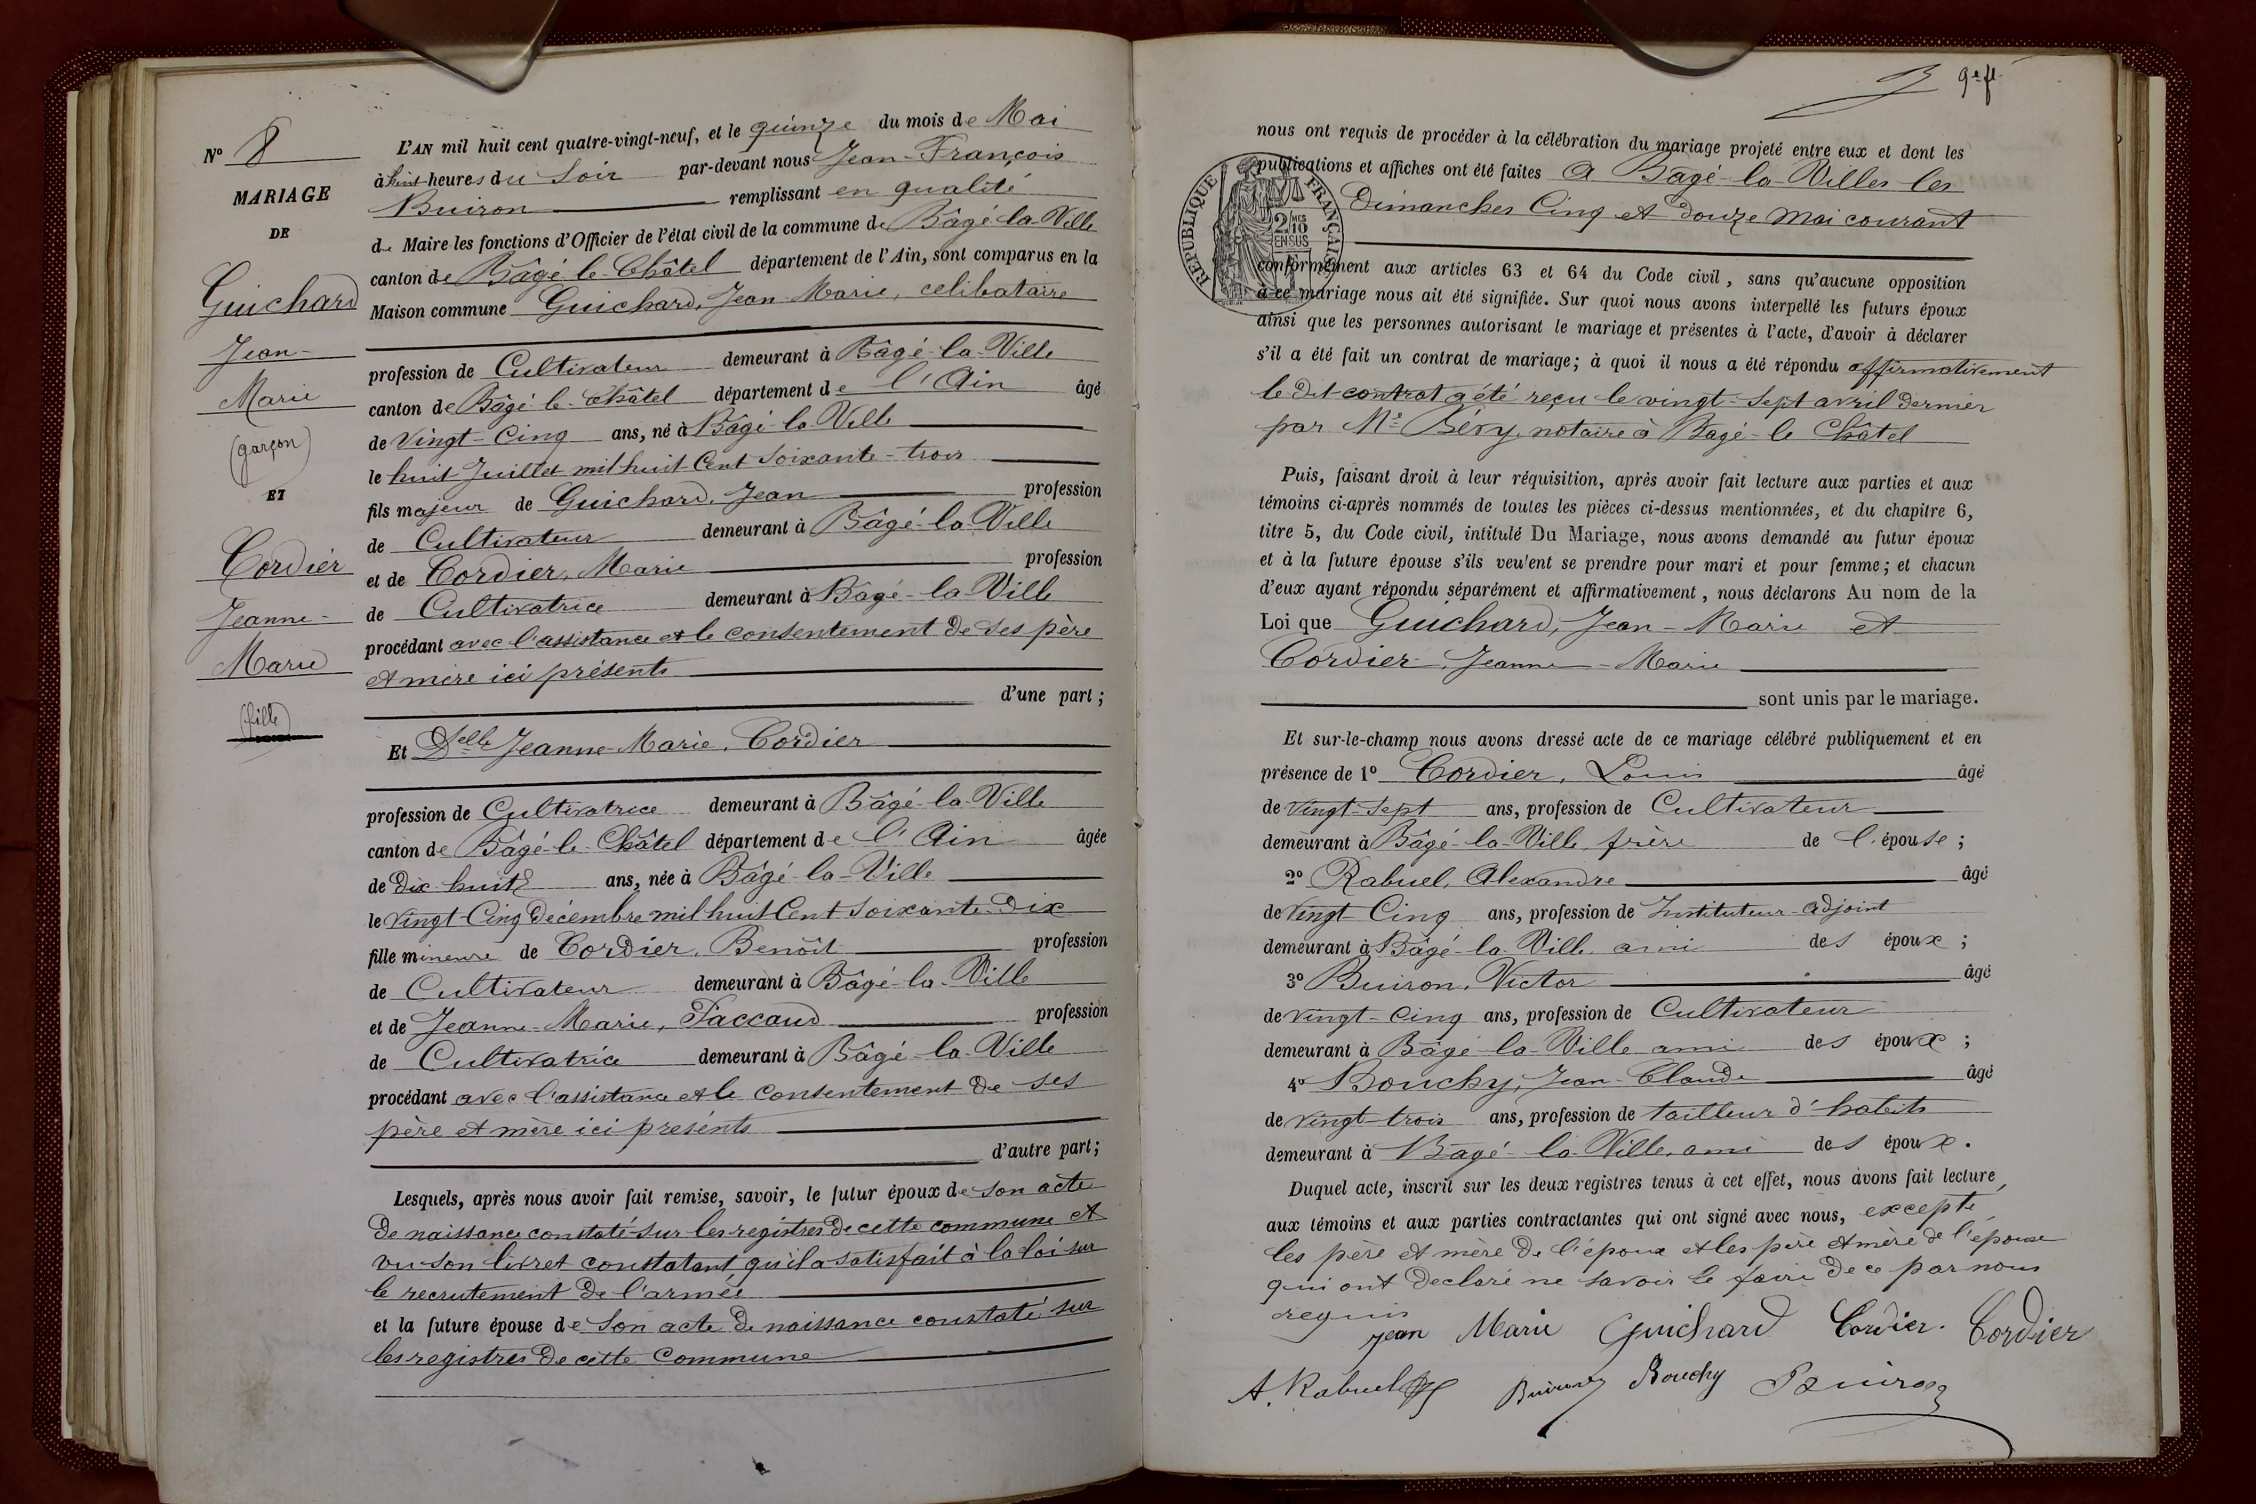 N° 8
MARIAGE
DE
Guichard
Jean-
Marie
(garçon)
ET
Cordier
Jeanne-
Marie
(fille)
L'AN mil huit cent quatre-vingt-neuf, et le quinze du mois de Mai
à huit heures du Soir par-devant nous Jean-François
Buiron remplissant en qualité
de Maire les fonctions d'Officier de l'état civil de la commune de Bâgé-la-Ville
canton de Bâgé-le-Châtel département de l'Ain, sont comparus en la
Maison commune Guichard, Jean-Marie, celibataire
profession de Cultivateur demeurant à Bâgé-la-Ville
canton de Bâgé-le-Châtel département de l'Ain âgé
de Vingt-Cinq ans, né à Bâgé-la-Ville
le huit Juillet mil huit Cent Soixante-trois
fils majeur de Guichard, Jean profession
de Cultivateur demeurant à Bâgé-la-Ville
et de Cordier, Marie profession
de Cultivatrice demeurant à Bâgé-la-Ville
procédant avec l'assistance et le consentement de ses père
et mère ici présents
d'une part;
Et Delle Jeanne-Marie, Cordier
profession de Cultivatrice demeurant à Bâgé-la-Ville
canton de Bâgé-le-Châtel département de l'Ain âgée
de dix-huit ans, née à Bâgé-la-Ville
le Vingt-Cinq Décembre mil huit Cent soixante-Dix
fille mineure de Cordier, Benoît profession
de Cultivateur demeurant à Bâgé-la-Ville
et de Jeanne-Marie, Paccaud profession
de Cultivatrice demeurant à Bâgé-la-Ville
procédant avec l'assistance et le consentement de ses
père et mère ici présents
d'autre part;
Lesquels, après nous avoir fait remise, savoir, le futur époux de son acte
de naissance constaté sur les registres de cette commune et
vu son livret constatant qu'il a satisfait à la loi sur
le recrutement de l'armée
et la future épouse de son acte de naissance constaté sur
les registres de cette Commune
nous ont requis de procéder à la célébration du mariage projeté entre eux et dont les
publications et affiches ont été faites à Bâgé-la-Ville les
Dimanches Cinq et douze Mai courant
RÉPUBLIQUE FRANÇAISE
2/10 MES
EN SUS
conformément aux articles 63 et 64 du Code civil, sans qu'aucune opposition
à ce mariage nous ait été signifiée. Sur quoi nous avons interpellé les futurs époux
ainsi que les personnes autorisant le mariage et présentes à l'acte, d'avoir à déclarer
s'il a été fait un contrat de mariage; à quoi il nous a été répondu affirmativement
le dit contrat a été reçu le vingt-sept avril dernier
par Me notaire à Bagé-le Châtel
Puis, faisant droit à leur réquisition, après avoir fait lecture aux parties et aux
témoins ci-après nommés de toutes les pièces ci-dessus mentionnées, et du chapitre 6,
titre 5, du Code civil, intitulé Du Mariage, nous avons demandé au futur époux
et à la future épouse s'ils veulent se prendre pour mari et pour femme; et chacun
d'eux ayant répondu séparément et affirmativement, nous déclarons Au nom de la
Loi que Guichard, Jean-Marie et
Cordier, Jeanne-Marie
sont unis par le mariage.
Et sur-le-champ nous avons dressé acte de ce mariage célébré publiquement et en
présence de 1° Cordier, Louis âgé
de vingt-sept ans, profession de Cultivateur
demeurant à Bâgé-la-Ville, frère de l'épouse;
2° Rabuel, Alexandre âgé
de Vingt-Cinq ans, profession de Instituteur adjoint
demeurant à Bâgé-la-Ville, ami des époux;
3° Buiron, Victor âgé
de vingt-cinq ans, profession de Cultivateur
demeurant à Bâgé-la-Ville ami des époux;
4° Bouchy, Jean-Claude âgé
de vingt-trois ans, profession de tailleur d'habits
demeurant à Bagé-la-Ville, ami des époux.
Duquel acte, inscrit sur les deux registres tenus à cet effet, nous avons fait lecture
aux témoins et aux parties contractantes qui ont signé avec nous, excepté
les père et mère de l'époux et les père et mère de l'épouse
qui ont declaré ne savoir le faire de ce par nous
requis
jean Marie Guichard Cordier. Cordier
A. Rabuel Buiron Bouchy Buiron